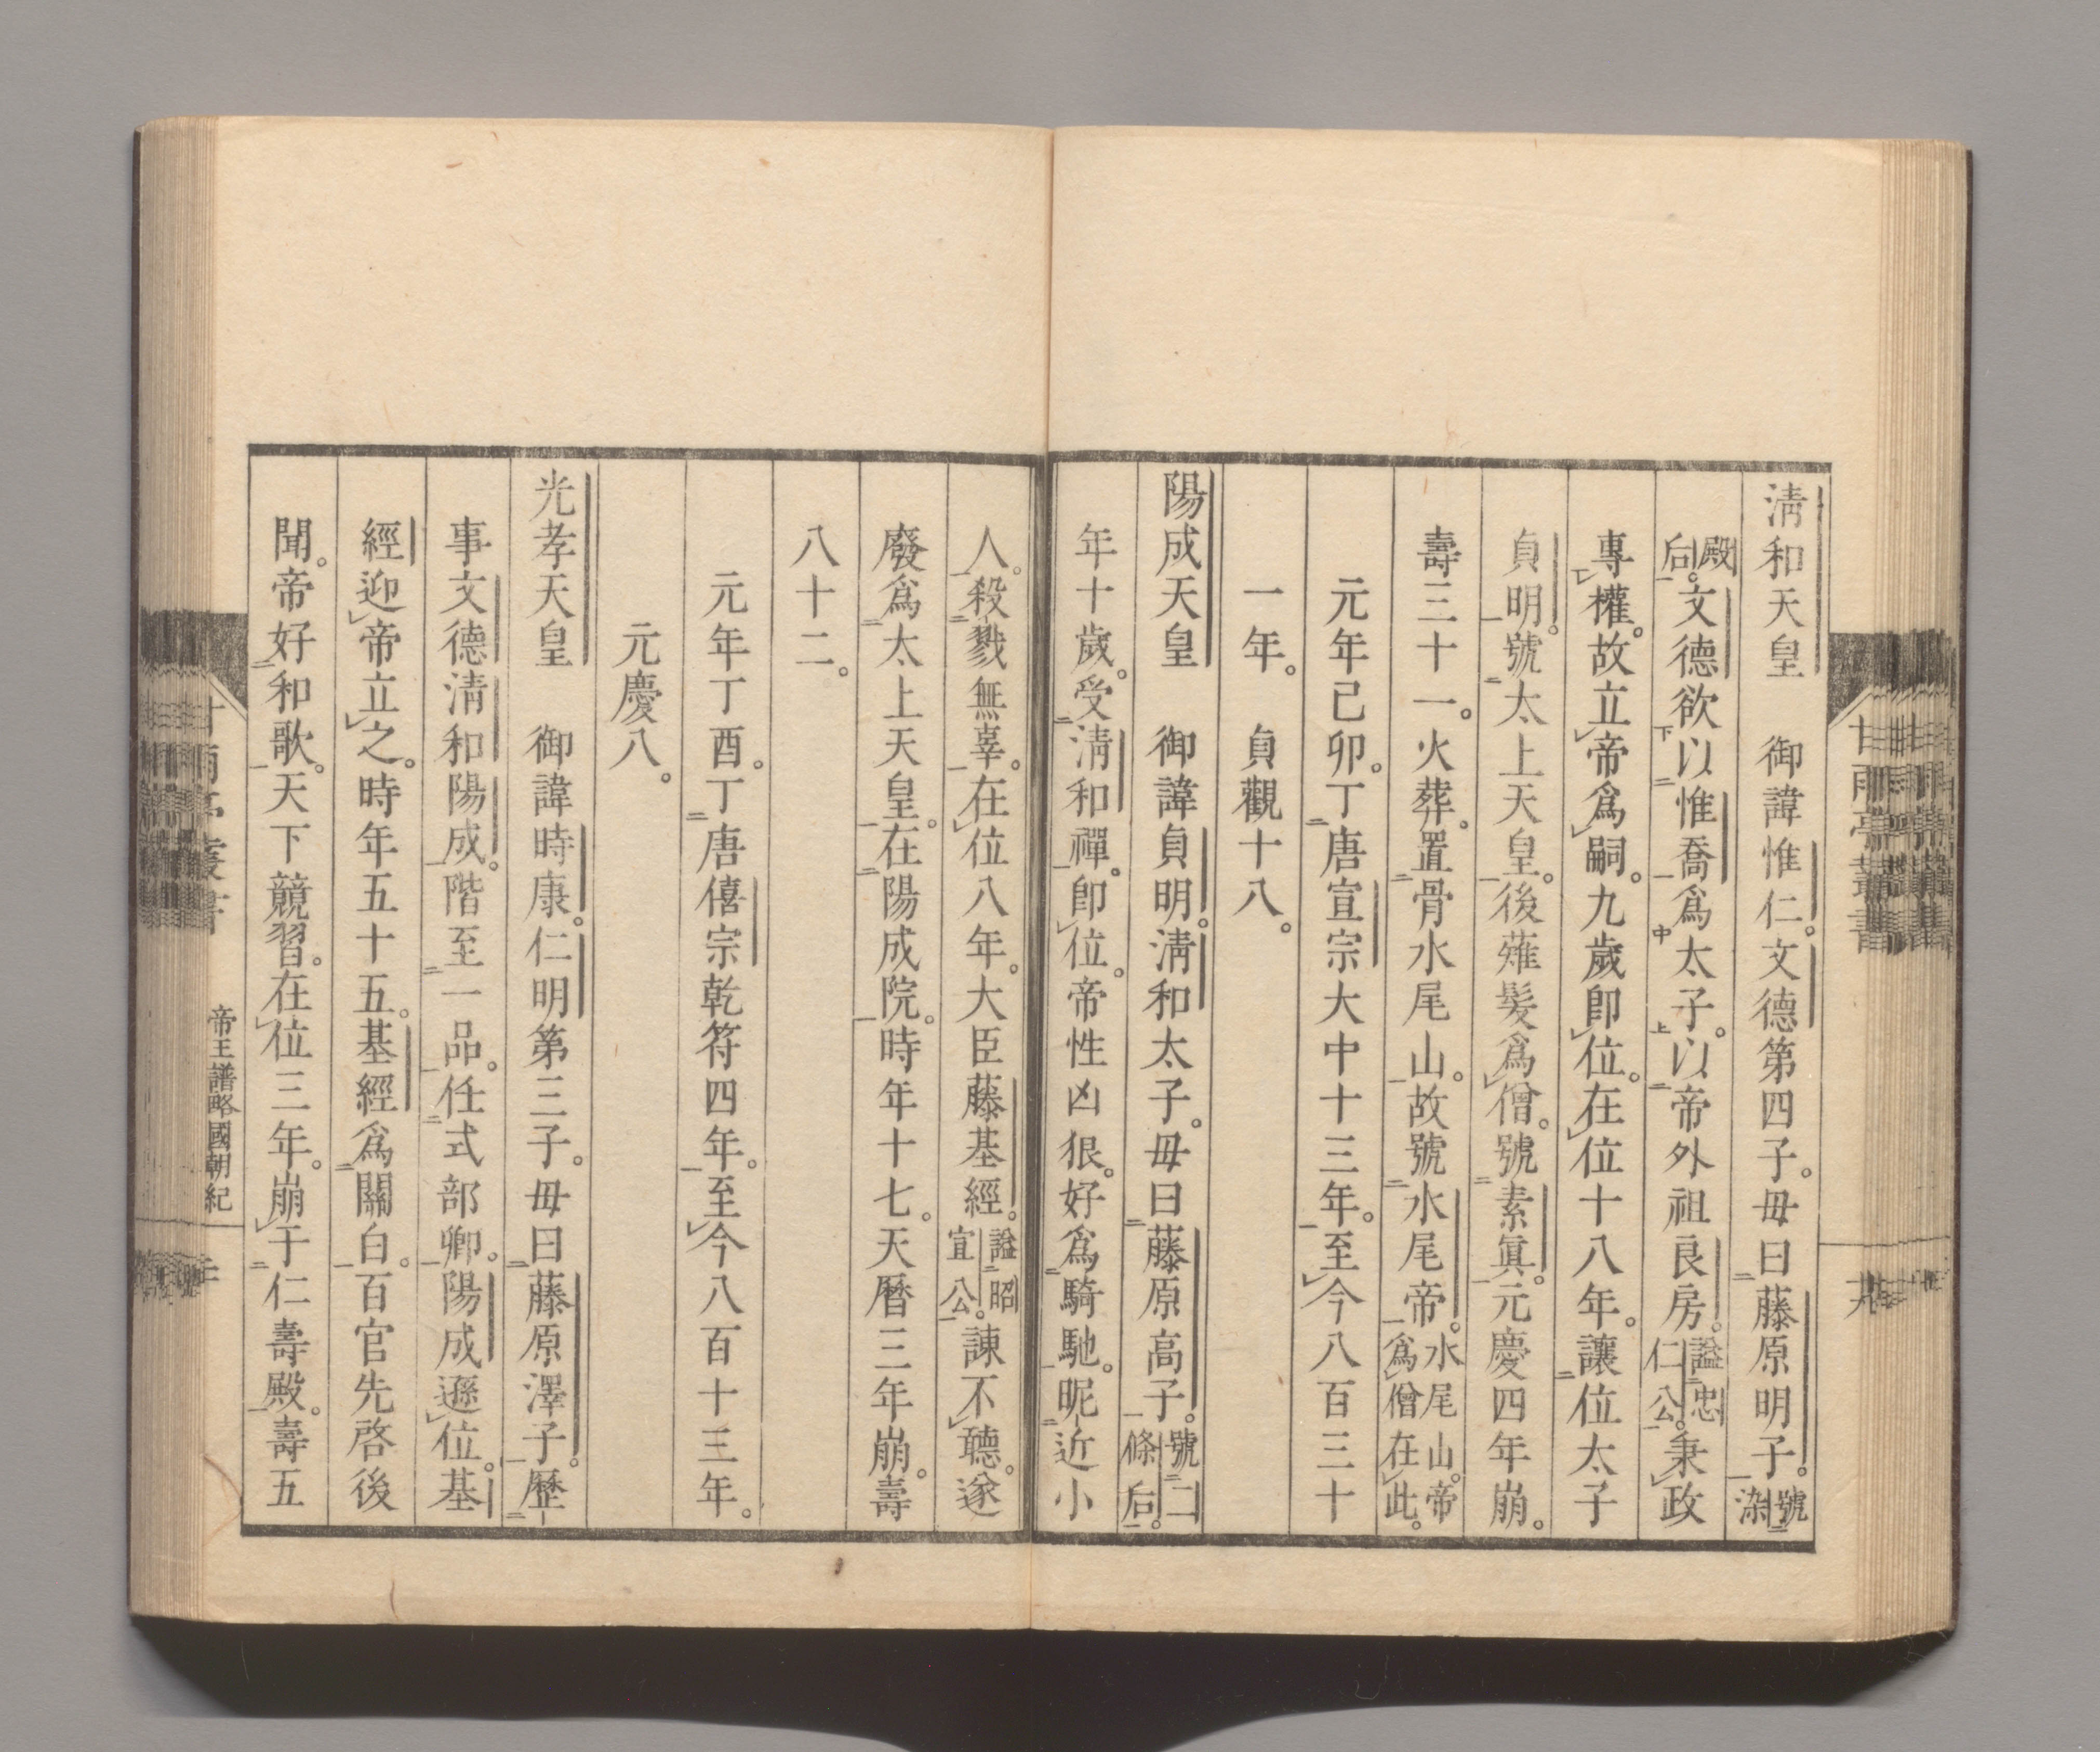 清和天皇　御諱惟仁。文德第四子。毋曰藤原明子。號染
殿后。文德欲以惟喬爲太子。以帝外祖良房。謚忠仁公。秉政
專權。故立帝爲嗣。九歲卽位。在位十八年。讓位太子
貞明。號太上天皇。後薙髮爲僧。號素眞。元慶四年崩。
壽三十一。火葬。置骨水尾山。故號水尾帝。水尾山。帝爲僧在此。
元年己卯。丁唐宣宗大中十三年。至今八百三十
一年。　貞觀十八。
陽成天皇　御諱貞明。淸和太子。毋曰藤原高子。號二條后。
年十歲。受淸和禪。卽位。帝性凶狠。好爲騎馳。昵近小
人。殺戮無辜。在位八年。大臣藤基經。謚昭宣公。諫不聽。遂
廢爲太上天皇。在陽成院。時年十七。天曆三年崩。壽
八十二。
元年丁酉。丁唐僖宗乾符四年。至今八百十三年。
元慶八。
光孝天皇　御諱時康。仁明第三子。毋曰藤原澤子。歷
事文德淸和陽成。階至一品。任式部卿。陽成遜位。基
經迎帝立之。時年五十五。基經爲關白。百官先啓後
聞。帝好和歌。天下競習。在位三年。崩于仁壽殿。壽五
甘雨亭叢書
九
甘雨亭叢書
帝王譜略國朝紀